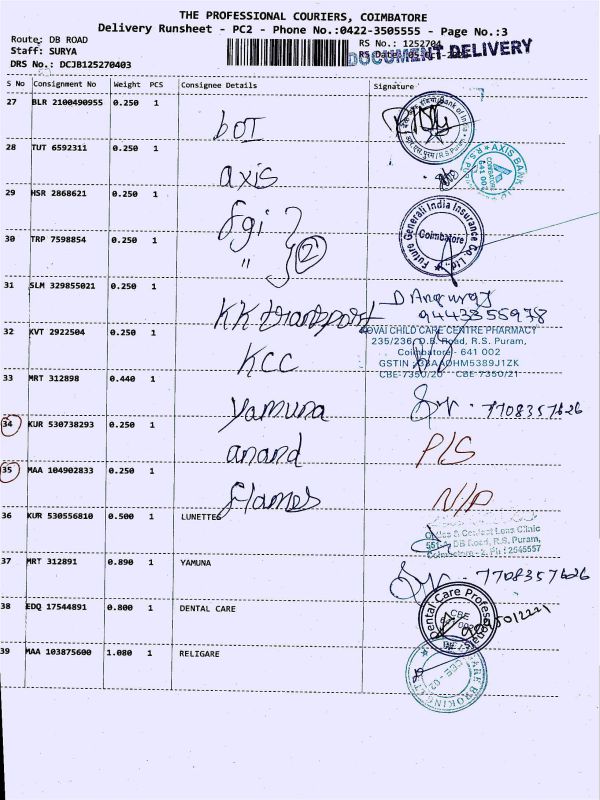 THE PROFESSIONAL COURIERS, COIMBATORE
Delivery Runsheet - PC2 - Phone No.:0422-3505555 - Page No.:3
Route: DB ROAD
RS No.: 1252704
Staff: SURYA
RS Date:
DOCUMENT DELIVERY
DRS No.: DCJB125270403
S No Consignment No Weight PCS Consignee Details Signature
27 BLR 2100490955 0.250 1 bOI
Bank of India
R.S. Puram
28 TUT 6592311 0.250 1 axis
AXIS BANK
COIMBATORE
641 002
29 HSR 2868621 0.250 1 fgi
Future Generali India Insurance Co. Ltd
Coimbatore
30 TRP 7598854 0.250 1 " 2
31 SLM 329855021 0.250 1 KK transport
32 KVT 2922504 0.250 1 KCC
KOVAI CHILD CARE CENTRE PHARMACY
235/236, D.B. Road, R.S. Puram,
Coimbatore - 641 002
CBE-7350/20 CBE 7350/21
33 MRT 312898 0.440 1 Yamuna 7708357626
34 KUR 530738293 0.250 1 anand P/S
35 MAA 104902833 0.250 1 flames N/P
36 KUR 530556810 0.500 1 LUNETTES
Contact Lens Clinic
DB Road, R.S. Puram,
Ph : 2545557
37 MRT 312891 0.890 1 YAMUNA 7708357626
38 EDQ 17544891 0.800 1 DENTAL CARE
Dental Care
CBE
39 MAA 103875600 1.080 1 RELIGARE